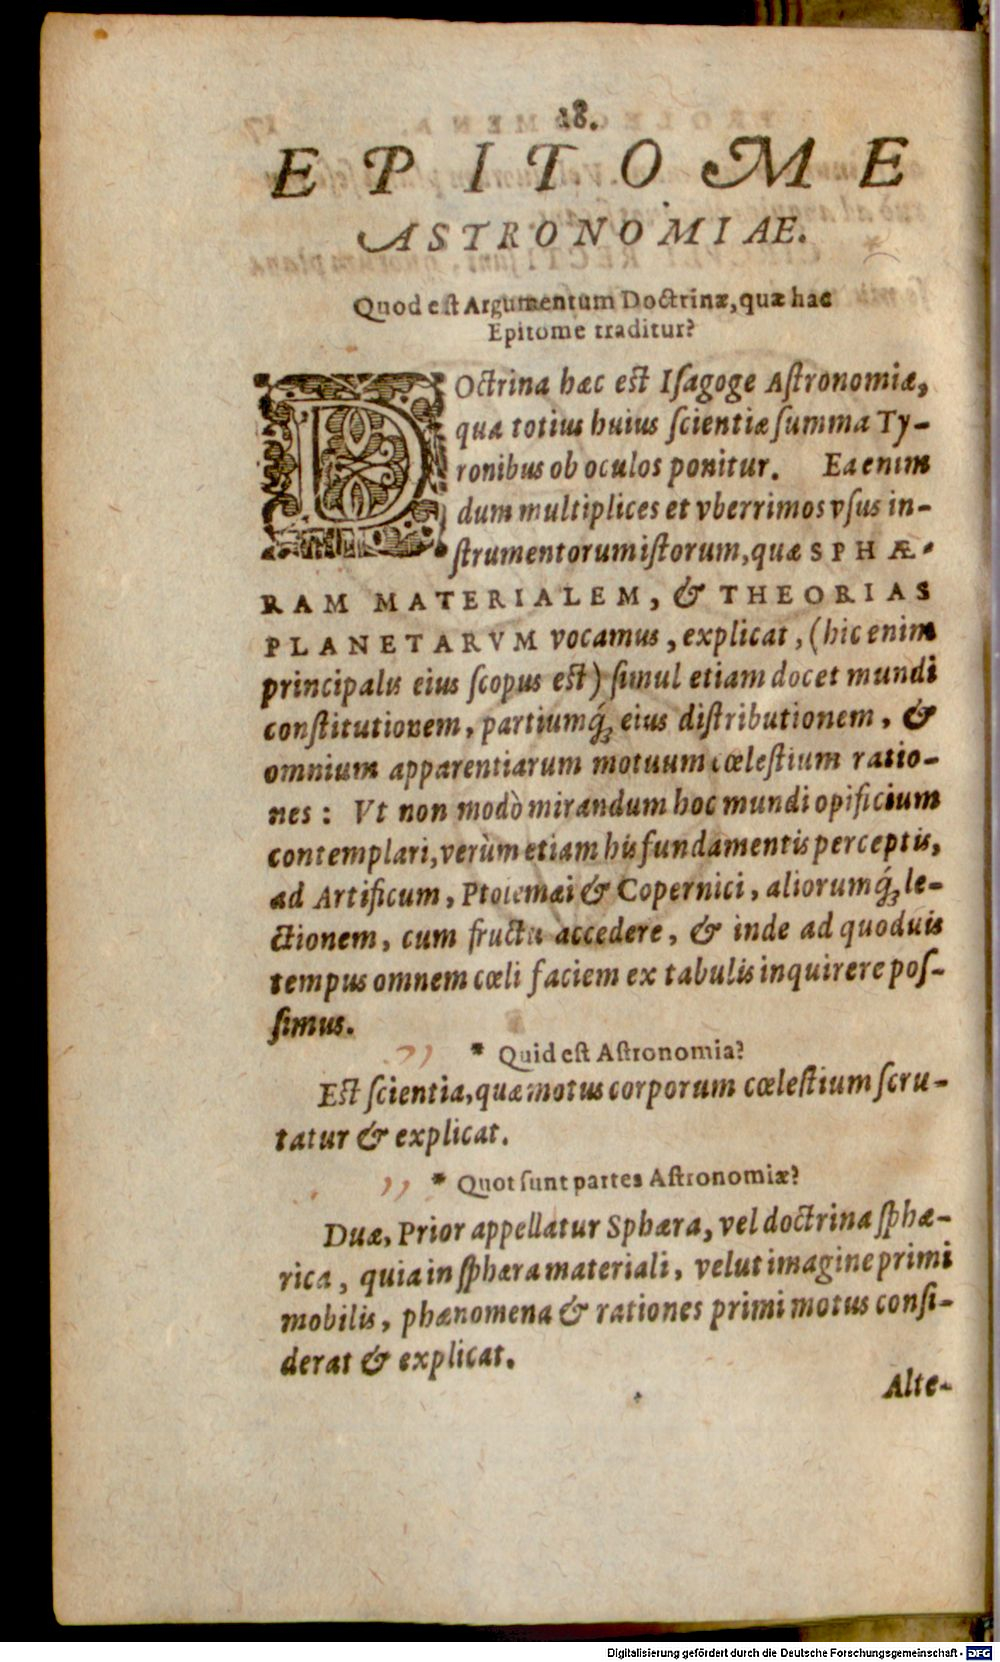 18.
EPITOME
ASTRONOMIAE.
Quod eſt Argumentum Doctrinæ, quæ hac
Epitome traditur?
DOctrina hæc eſt Iſagoge Aſtronomiæ,
qua totius huius ſcientiæ ſumma Ty-
ronibus ob oculos ponitur. Ea enim
dum multiplices et vberrimos vſus in-
ſtrumentorum iſtorum, quæ SPHÆ-
RAM MATERIALEM, & THEORIAS
PLANETARVM vocamus, explicat, (hic enim
principalis eius ſcopus eſt) ſimul etiam docet mundi
conſtitutionem, partiumq́ꝫ eius diſtributionem, &
omnium apparentiarum motuum cœleſtium ratio-
nes: Vt non modò mirandum hoc mundi opificium
contemplari, verùm etiam his fundamentis perceptis,
ad Artificum, Ptolemæi & Copernici, aliorumq́ꝫ le-
ctionem, cum fructu accedere, & inde ad quoduis
tempus omnem cœli faciem ex tabulis inquirere poſ-
ſimus.
* Quid eſt Aſtronomia?
Eſt ſcientia, quæ motus corporum cœleſtium ſcru-
tatur & explicat.
* Quot ſunt partes Aſtronomiæ?
Duæ, Prior appellatur Sphæra, vel doctrina ſphæ-
rica, quia in ſphæra materiali, velut imagine primi
mobilis, phænomena & rationes primi motus conſi-
derat & explicat.
Alte-
Digitalisierung gefördert durch die Deutsche Forschungsgemeinschaft - DFG